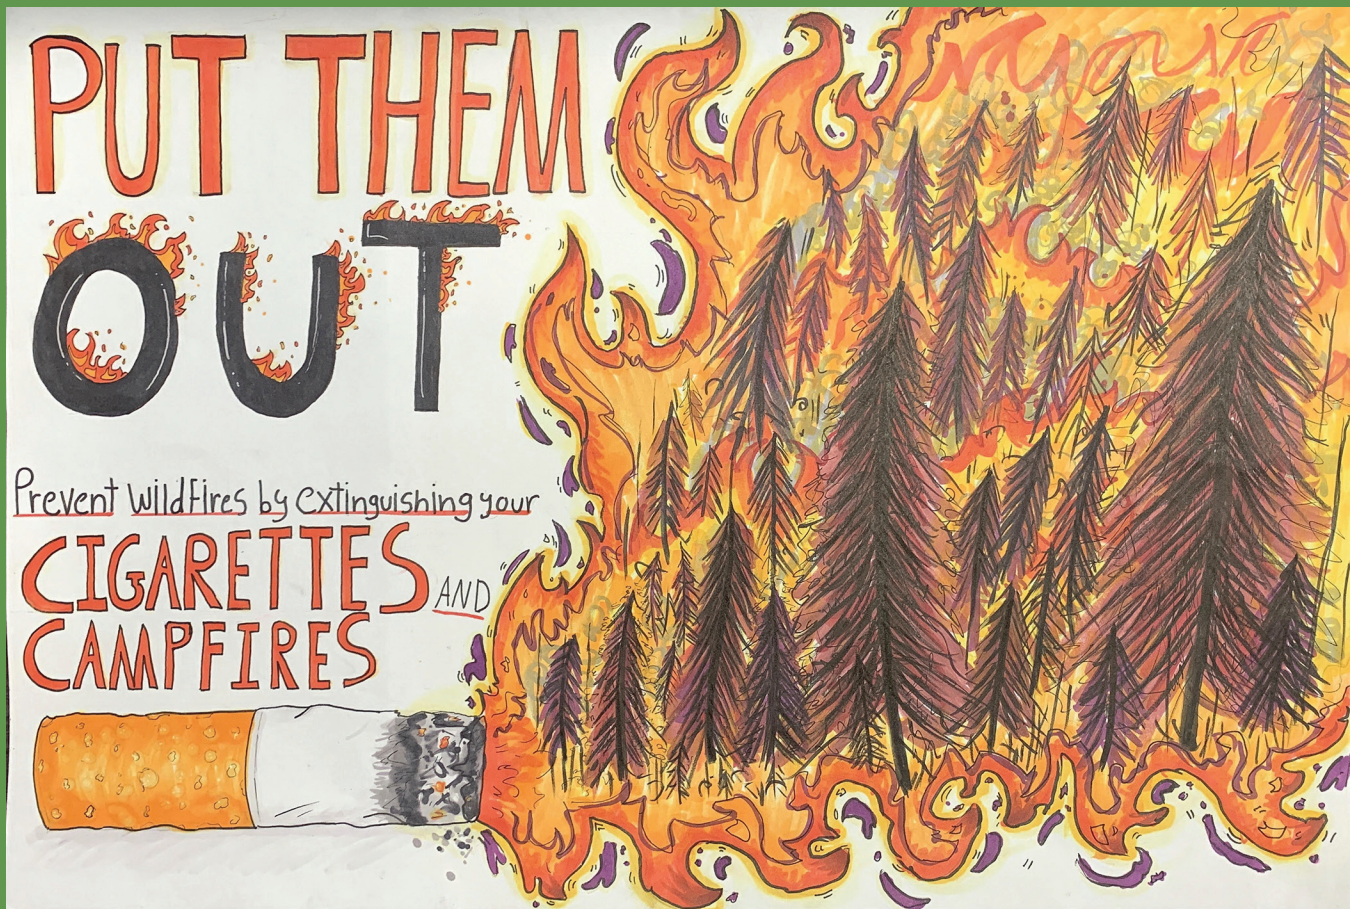 PUT THEM
OUT
Prevent WildFires by extinguishing your
CIGARETTES AND
CAMPFIRES